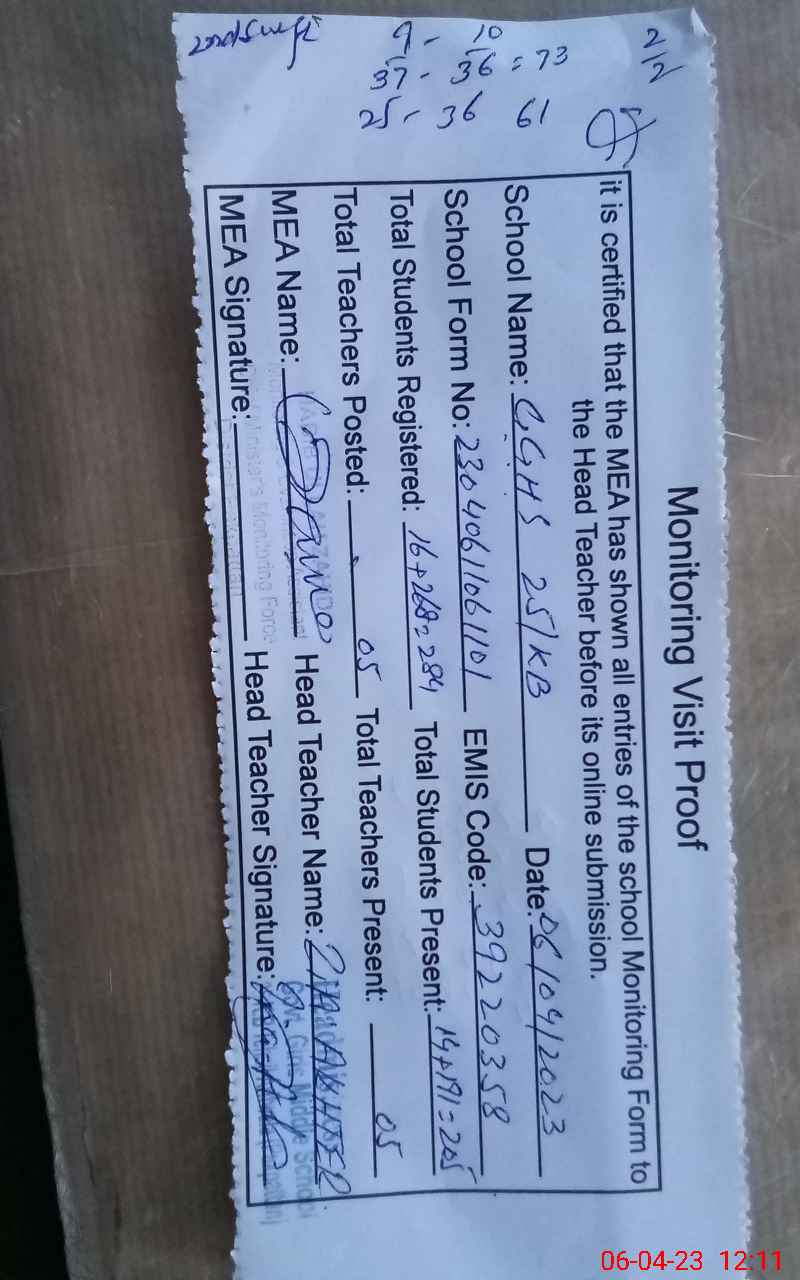 2/2
9, 10
37, 36 = 73
25, 36 61
Monitoring Visit Proof
it is certified that the MEA has shown all entries of the school Monitoring Form to
the Head Teacher before its online submission.
School Name: GGHS 251KB Date: 06/04/2023
School Form No: 23040611061101 EMIS Code: 39220358
Total Students Registered: 16+268=284 Total Students Present: 14+191=205
Total Teachers Posted: 05 Total Teachers Present: 05
MEA Name: Head Teacher Name: AKHTER
MEA Signature: Head Teacher Signature:
Minister's Monitoring Force
Govt. Girls Middle School
06-04-23 12:11